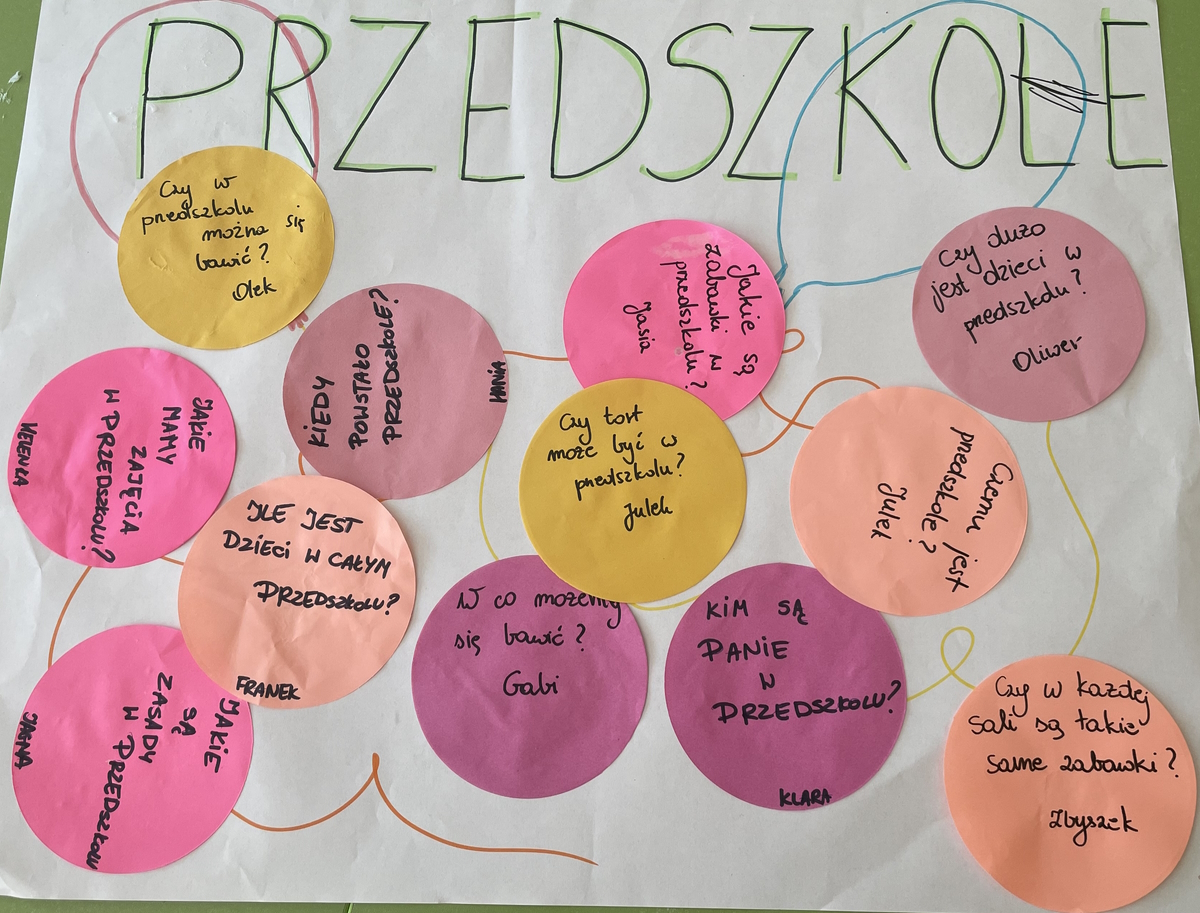 PRZEDSZKOLE
Czy w
przedszkolu
można się
bawić?
Olek
KIEDY
POWSTAŁO
PRZEDSZKOLE?
HANIA
Jakie są
zabawki w
przedszkolu?
Jasia
Czy dużo
jest dzieci w
przedszkolu?
Oliwer
JAKIE
MAMY
ZAJĘCIA
W PRZEDSZKOLU?
HELENKA
ILE JEST
DZIECI W CAŁYM
PRZEDSZKOLU?
FRANEK
Czy tort
może być w
przedszkolu?
Julek
Czemu jest
przedszkole?
Julek
JAKIE
SĄ
ZASADY
W PRZEDSZKOLU
JAGNA
W co możemy
się bawić?
Gabi
KIM SĄ
PANIE
W
PRZEDSZKOLU?
KLARA
Czy w każdej
sali są takie
same zabawki?
Zbyszek